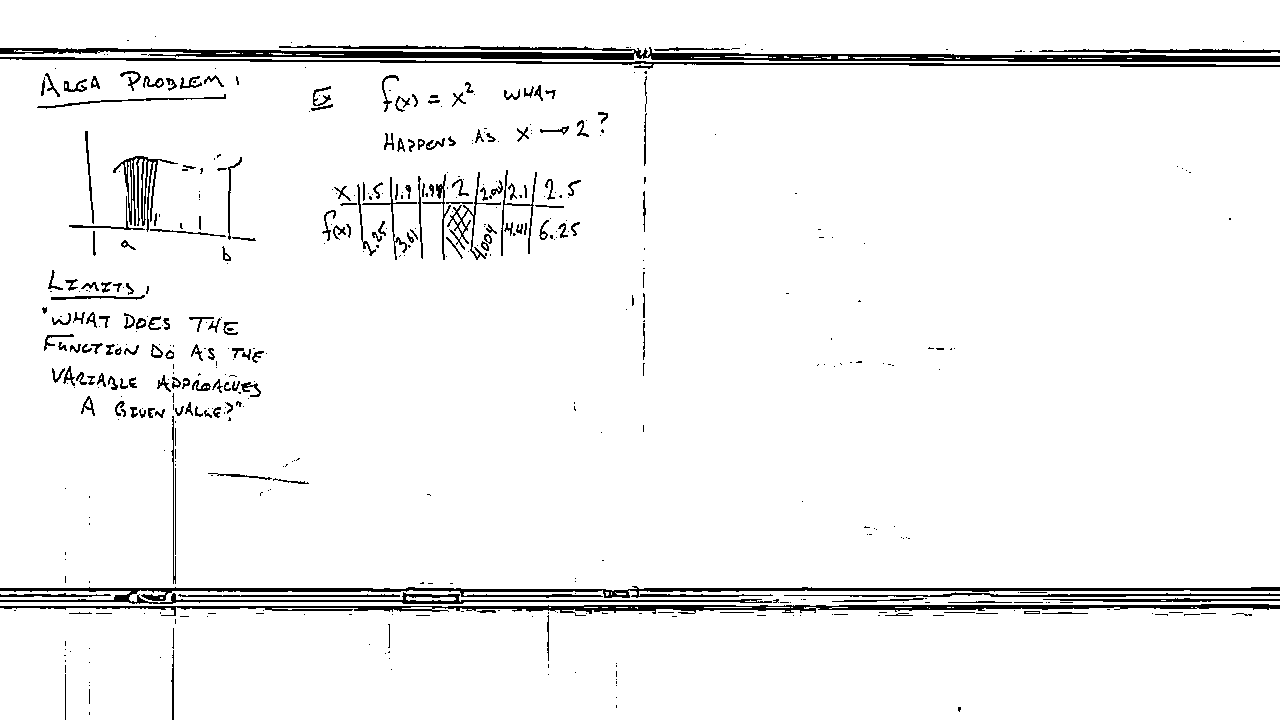 AREA PROBLEM:
a b
LIMITS:
"WHAT DOES THE
FUNCTION DO AS THE
VARIABLE APPROACHES
A GIVEN VALUE?"
Ex f(x) = x² WHAT
HAPPENS AS x → 2?
x 1.5 1.9 2 2.1 2.5
f(x) 2.25 3.61 4.004 4.41 6.25